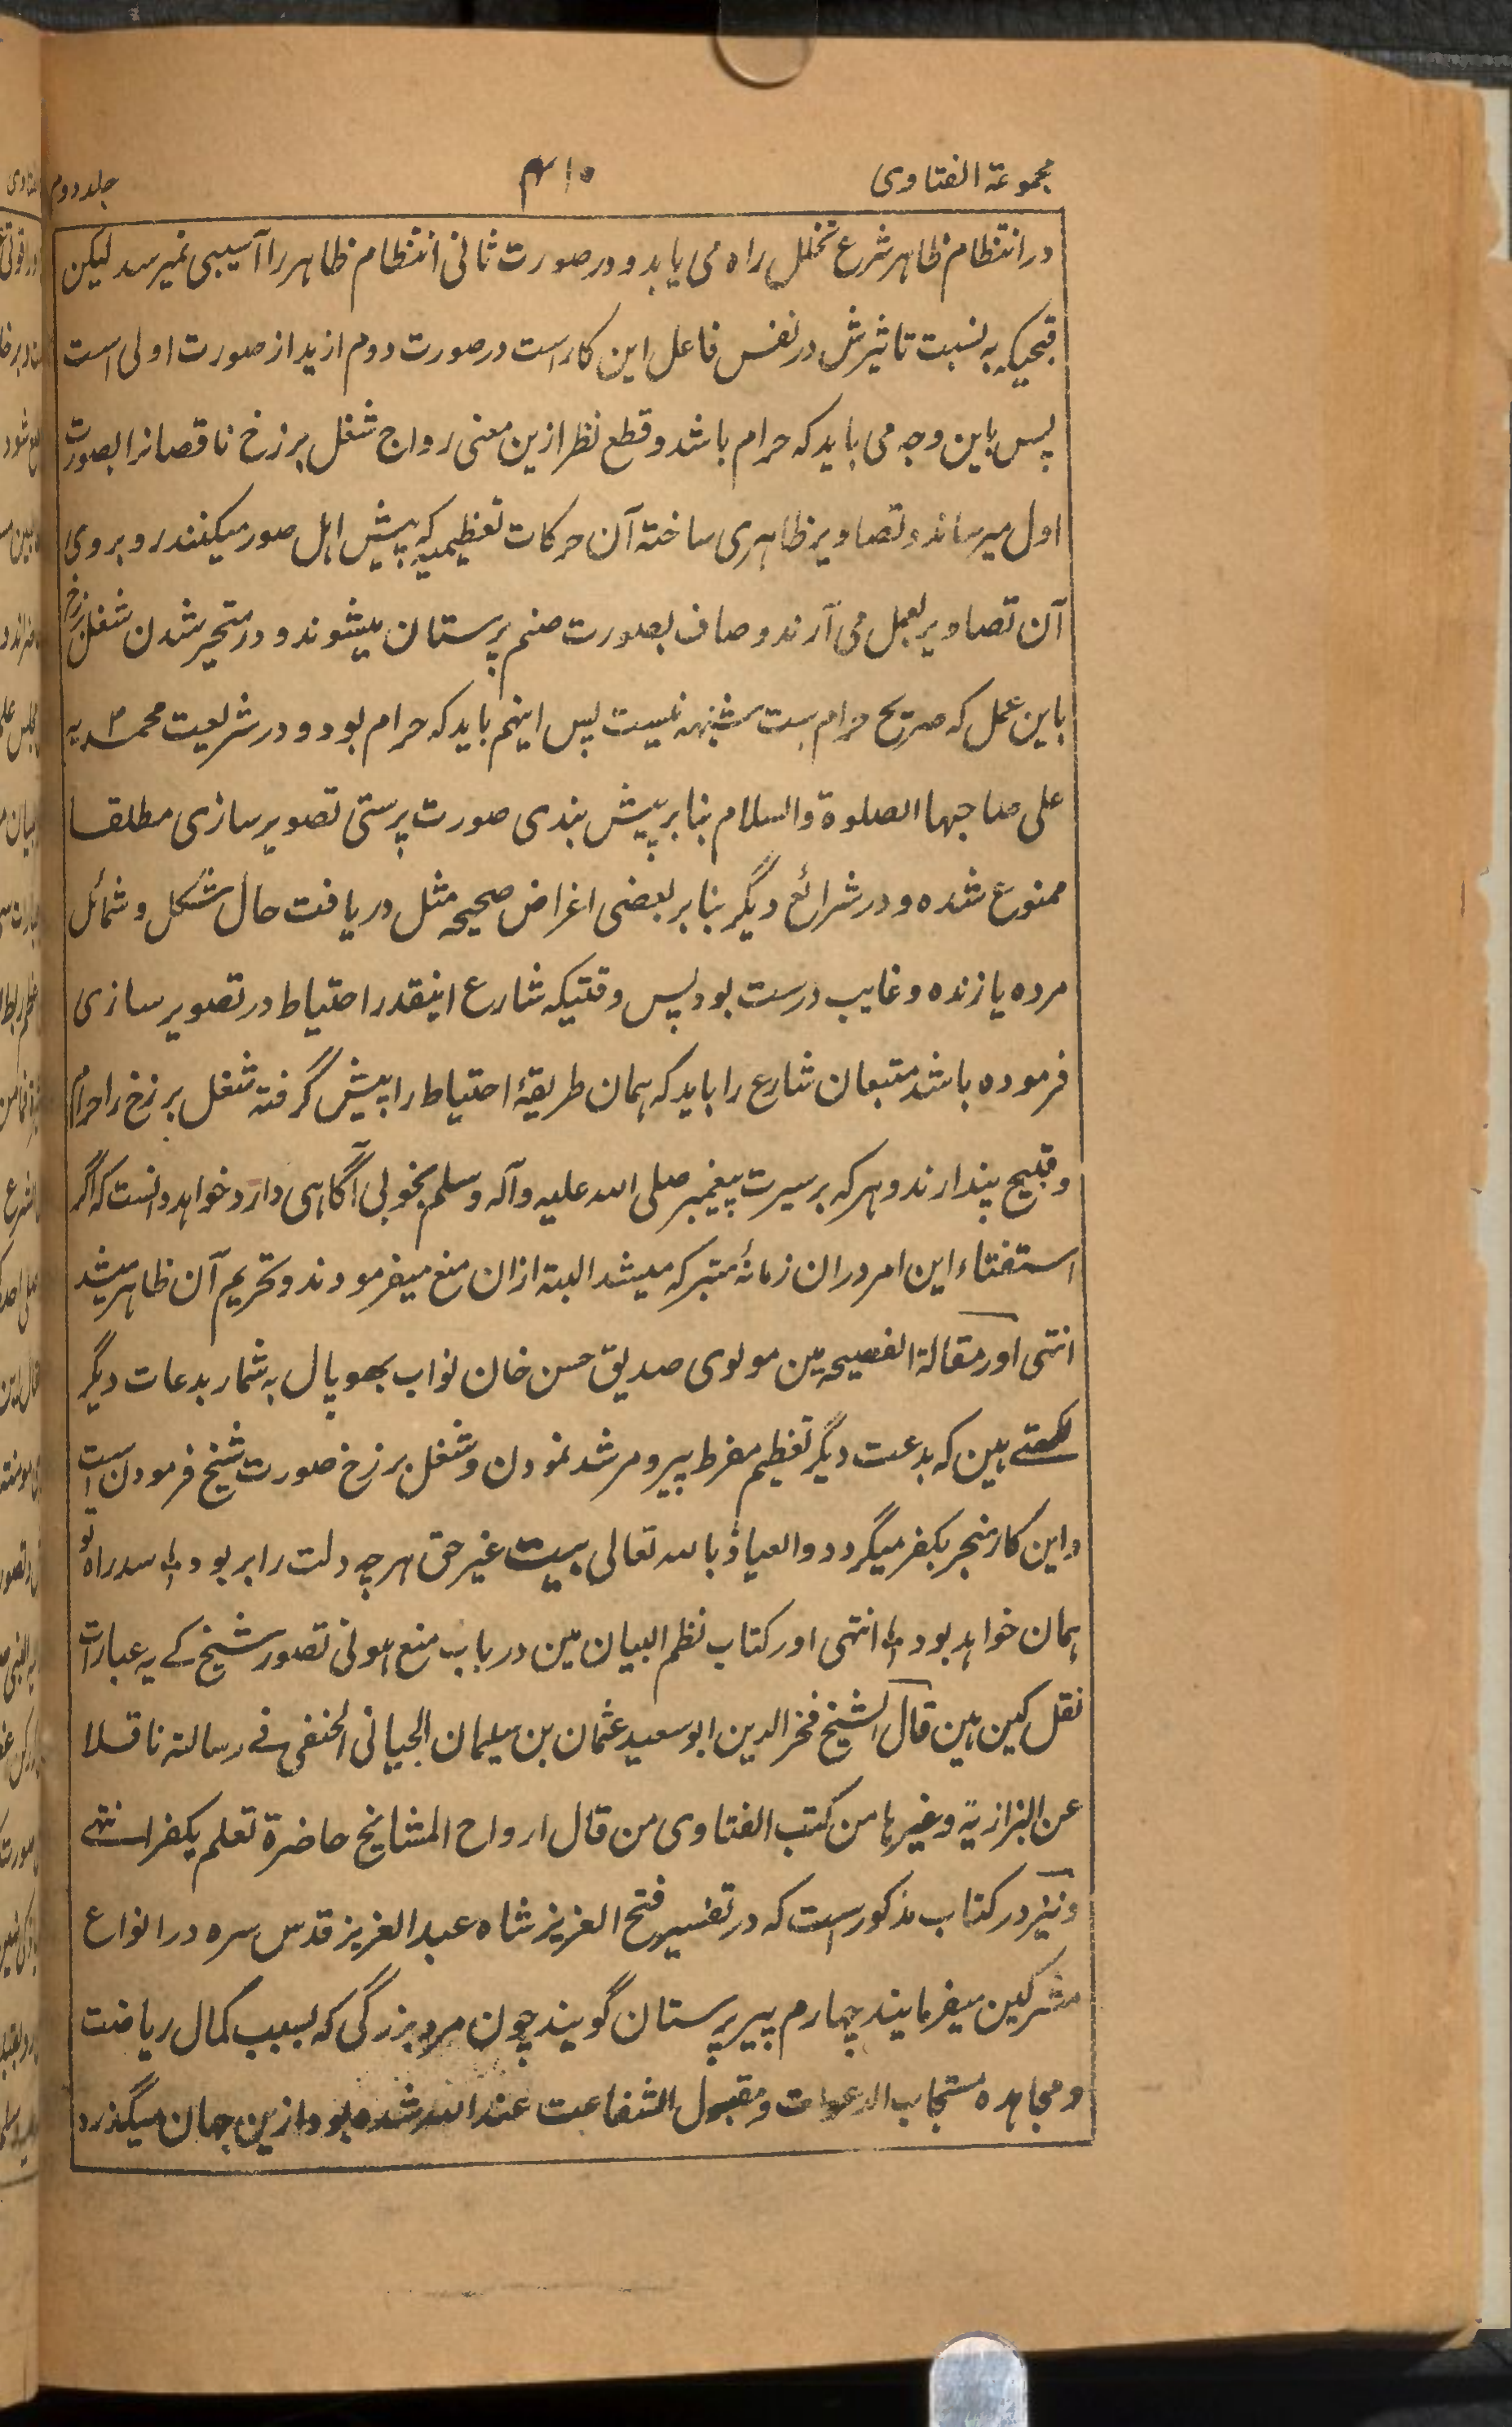 مجموعۃ الفتاوی ۴۱۰ جلد دوم
در انتظام ظاہر شرع تخلل راہ می یابد و در صورت ثانی انتظام ظاہر را آسیبی نمیرسد لیکن
قبحیکہ بہ نسبت تاثیرش در نفس فاعل این کار است در صورت دوم ازید از صورت اولی است
پس باین وجہ می باید کہ حرام باشد و قطع نظر ازین معنی رواج شغل برزخ ناقصانرا بصورت
اول میرساند و تصاویر ظاہری ساختہ آن حرکات تعظیمیہ کہ پیش اہل صور میکنند روبروی
آن تصاویر بعمل می آرند و صاف بصورت صنم پرستان میشوند و در منجر شدن شغل برزخ
باین عمل کہ صریح حرام ہست شبہہ نیست پس اینہم باید کہ حرام بود و در شریعت محمدیہ
علی صاحبہا الصلوۃ والسلام بنا بر پیش بندی صورت پرستی تصویر سازی مطلقا
ممنوع شدہ و در شرائع دیگر بنا بر بعضی اغراض صحیحہ مثل دریافت حال شکل و شمائل
مردہ یا زندہ و غایب درست بود پس وقتیکہ شارع اینقدر احتیاط در تصویر سازی
فرمودہ باشد متبعان شارع را باید کہ ہمان طریقۂ احتیاط را پیش گرفتہ شغل برزخ را حرام
و قبیح پندارند و ہر کہ بر سیرت پیغمبر صلی اللہ علیہ وآلہ وسلم بخوبی آگاہی دارد خواہد دانست کہ اگر
استفتاء این امر دران زمانۂ متبرکہ میشد البتہ ازان منع میفرمودند و تحریم آن ظاہر میشد
انتہی اور مقالۃ الفصیحہ مین مولوی صدیق حسن خان نواب بھوپال بہ شمار بدعات دیگر
لکھتے ہین کہ بدعت دیگر تعظیم مفرط پیر و مرشد نمودن و شغل برزخ صورت شیخ فرمودن است
و این کار منجر بکفر میگردد والعیاذ باللہ تعالی بیت غیر حق ہر چہ دلت را بربود ؛ سد راہ تو
ہمان خواہد بود ؛ انتہی اور کتاب نظم البیان مین در باب منع ہونی تصور شیخ کے یہ عبارات
نقل کین ہین قال الشیخ فخر الدین ابو سعید عثمان بن سلیمان الجیانی الحنفی فے رسالتہ ناقلا
عن البزازیۃ وغیرہا من کتب الفتاوی من قال ارواح المشائخ حاضرۃ تعلم یکفر انتہے
و نیز در کتاب مذکور است کہ در تفسیر فتح العزیز شاہ عبد العزیز قدس سرہ در انواع
مشرکین میفرمایند چہارم پیر پرستان گویند چون مرد بزرگی کہ بسبب کمال ریاضت
و مجاہدہ مستجاب الدعوات و مقبول الشفاعت عند اللہ شدہ بود ازین جہان میگذرد